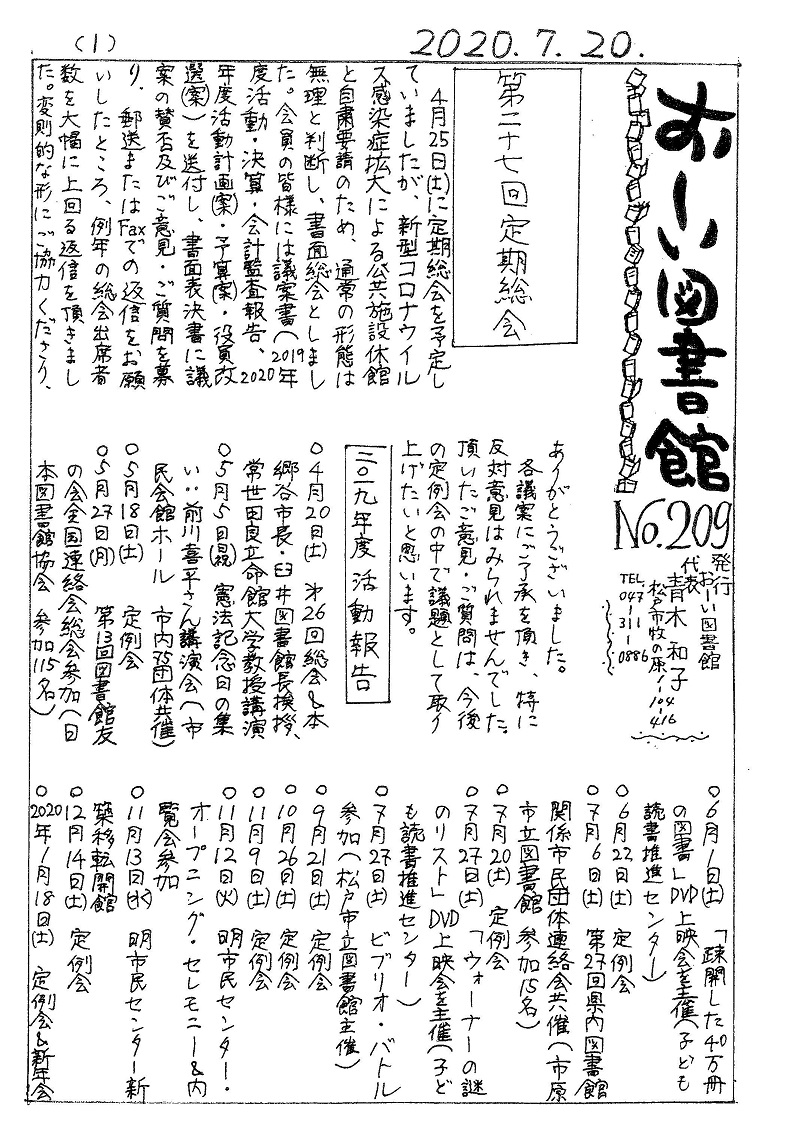 (1)
2020.7.20.
おーい図書館
No.209
発行
おーい図書館
代表 青木和子
松戸市牧の原1-104-416
TEL 047-311-0886
第二十七回定期総会
4月25日(土)に定期総会を予定し
ていましたが、新型コロナウイル
ス感染症拡大による公共施設休館
と自粛要請のため、通常の形態は
無理と判断し、書面総会としまし
た。会員の皆様には議案書(2019年
度活動・決算・会計監査報告、2020
年度活動計画(案)・予算(案)・役員改
選(案))を送付し、書面表決書に議
案の賛否及びご意見・ご質問を募
り、郵送またはFaxでの返信をお願
いしたところ、例年の総会出席者
数を大幅に上回る返信を頂きまし
た。変則的な形にご協力くださり、
ありがとうございました。
各議案にご了承を頂き、特に
反対意見はみられませんでした。
頂いたご意見・ご質問は、今後
の定例会の中で議題として取り
上げたいと思います。
二〇一九年度活動報告
○4月20日(土) 第26回総会&本
郷谷市長・臼井図書館長挨拶、
常世田良立命館大学教授講演
○5月5日(祝) 憲法記念日の集
い:前川喜平さん講演会(市
民会館ホール 市内75団体共催)
○5月18日(土) 定例会
○5月27日(月) 第13回図書館友
の会全国連絡会総会参加(日
本図書館協会 参加115名)
○6月1日(土) 「疎開した40万冊
の図書」DVD上映会を主催(子ども
読書推進センター)
○6月22日(土) 定例会
○7月6日(土) 第27回県内図書館
関係市民団体連絡会共催(市原
市立図書館 参加15名)
○7月20日(土) 定例会
○7月27日(土) 「ウォーナーの謎
のリスト」DVD上映会を主催(子ど
も読書推進センター)
○7月27日(土) ビブリオ・バトル
参加(松戸市立図書館主催)
○9月21日(土) 定例会
○10月26日(土) 定例会
○11月9日(土) 定例会
○11月12日(火) 明市民センター・
オープニング・セレモニー&内
覧会参加
○11月13日(水) 明市民センター新
築移転開館
○12月14日(土) 定例会
○2020年1月18日(土) 定例会&新年会